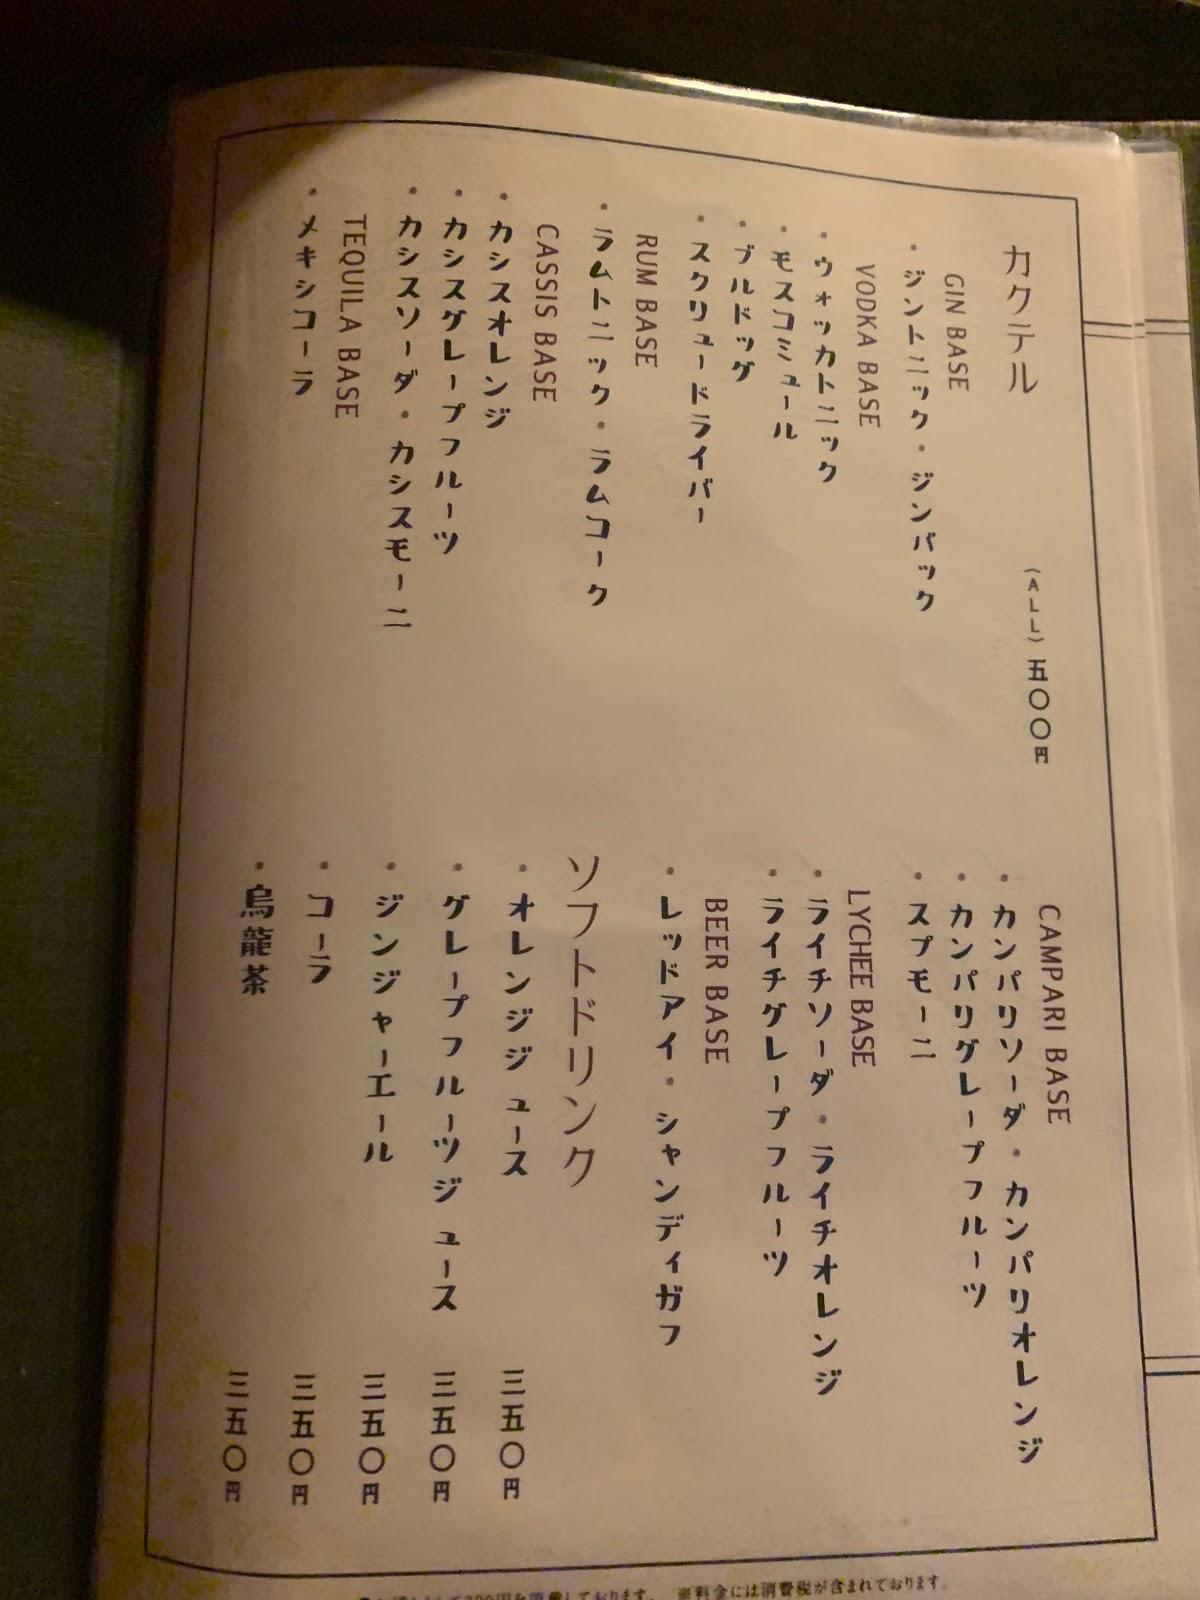 カクテル
(ALL) 五〇〇円
GIN BASE
・ジントニック・ジンバック
VODKA BASE
・ウォッカトニック
・モスコミュール
・ブルドッグ
・スクリュードライバー
RUM BASE
・ラムトニック・ラムコーク
CASSIS BASE
・カシスオレンジ
・カシスグレープフルーツ
・カシスソーダ・カシスモーニ
TEQUILA BASE
・メキシコーラ
CAMPARI BASE
・カンパリソーダ・カンパリオレンジ
・カンパリグレープフルーツ
・スプモーニ
LYCHEE BASE
・ライチソーダ・ライチオレンジ
・ライチグレープフルーツ
BEER BASE
・レッドアイ・シャンディガフ
ソフトドリンク
・オレンジジュース 三五〇円
・グレープフルーツジュース 三五〇円
・ジンジャーエール 三五〇円
・コーラ 三五〇円
・烏龍茶 三五〇円
しております。 ※料金には消費税が含まれております。